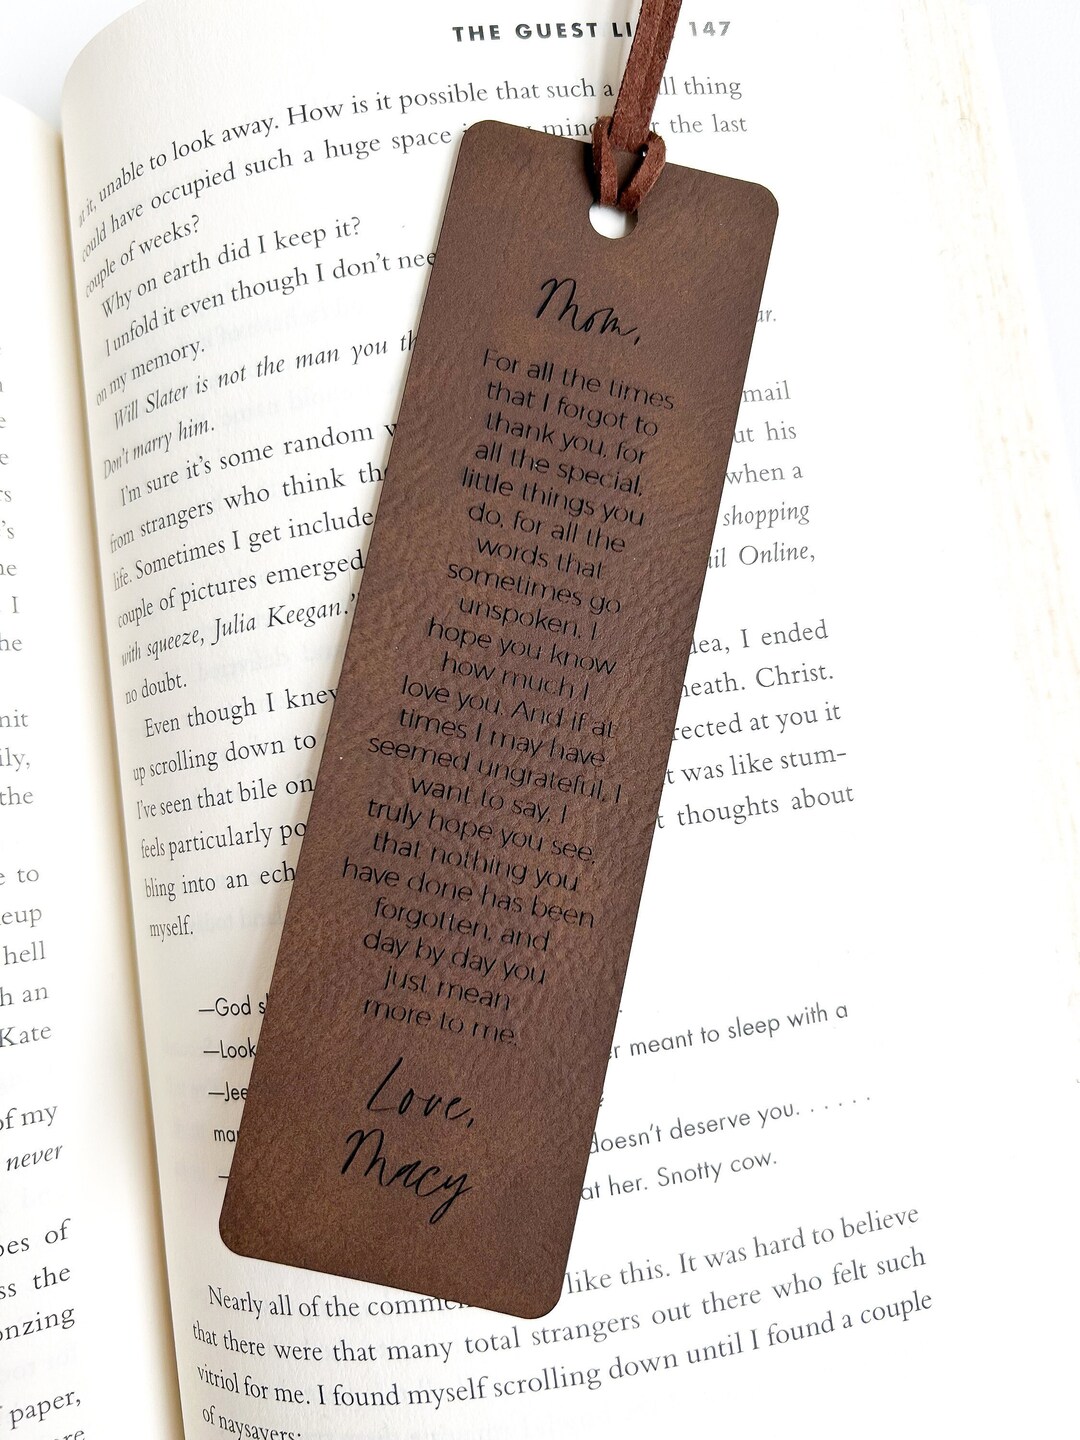 THE GUEST LI 147
at it, unable to look away. How is it possible that such a ll thing
could have occupied such a huge space mind the last
couple of weeks?
Why on earth did I keep it?
I unfold it even though I don't nee
ar.
on my memory.
Will Slater is not the man you th
Don't marry him.
mail
I'm sure it's some random w
ut his
from strangers who think th
when a
life. Sometimes I get include
shopping
couple of pictures emerged
il Online,
with squeeze, Julia Keegan."
no doubt.
dea, I ended
Even though I knew
neath. Christ.
up scrolling down to
rected at you it
I've seen that bile on
t was like stum-
feels particularly po
t thoughts about
bling into an ech
myself.
—God s
r meant to sleep with a
—Look
—Jee
doesn't deserve you. . . . . .
mar
at her. Snotty cow.
—
like this. It was hard to believe
Nearly all of the comme
that there were that many total strangers out there who felt such
vitriol for me. I found myself scrolling down until I found a couple
of naysayers:
Mom,
For all the times
that I forgot to
thank you, for
all the special,
little things you
do, for all the
words that
sometimes go
unspoken, I
hope you know
how much I
love you. And if at
times I may have
seemed ungrateful, I
want to say, I
truly hope you see,
that nothing you
have done has been
forgotten, and
day by day you
just mean
more to me.
Love,
Macy
s
's
ne
I
he
nit
ily,
the
e to
eup
hell
h an
Kate
of my
never
oes of
ss the
onzing
paper,